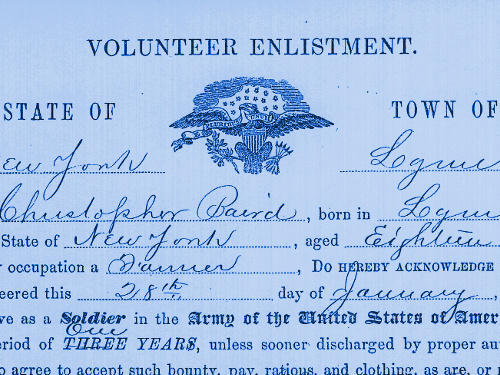 VOLUNTEER ENLISTMENT.
STATE OF TOWN OF
New York Lyme
Christopher Baird, born in Lyme
State of New York, aged Eighteen
occupation a Farmer, Do HEREBY ACKNOWLEDGE
eered this 28th day of January,
ve as a Soldier in the Army of the United States of Amer
One
eriod of THREE YEARS, unless sooner discharged by proper au
o agree to accept such bounty, pay, rations, and clothing, as are, or